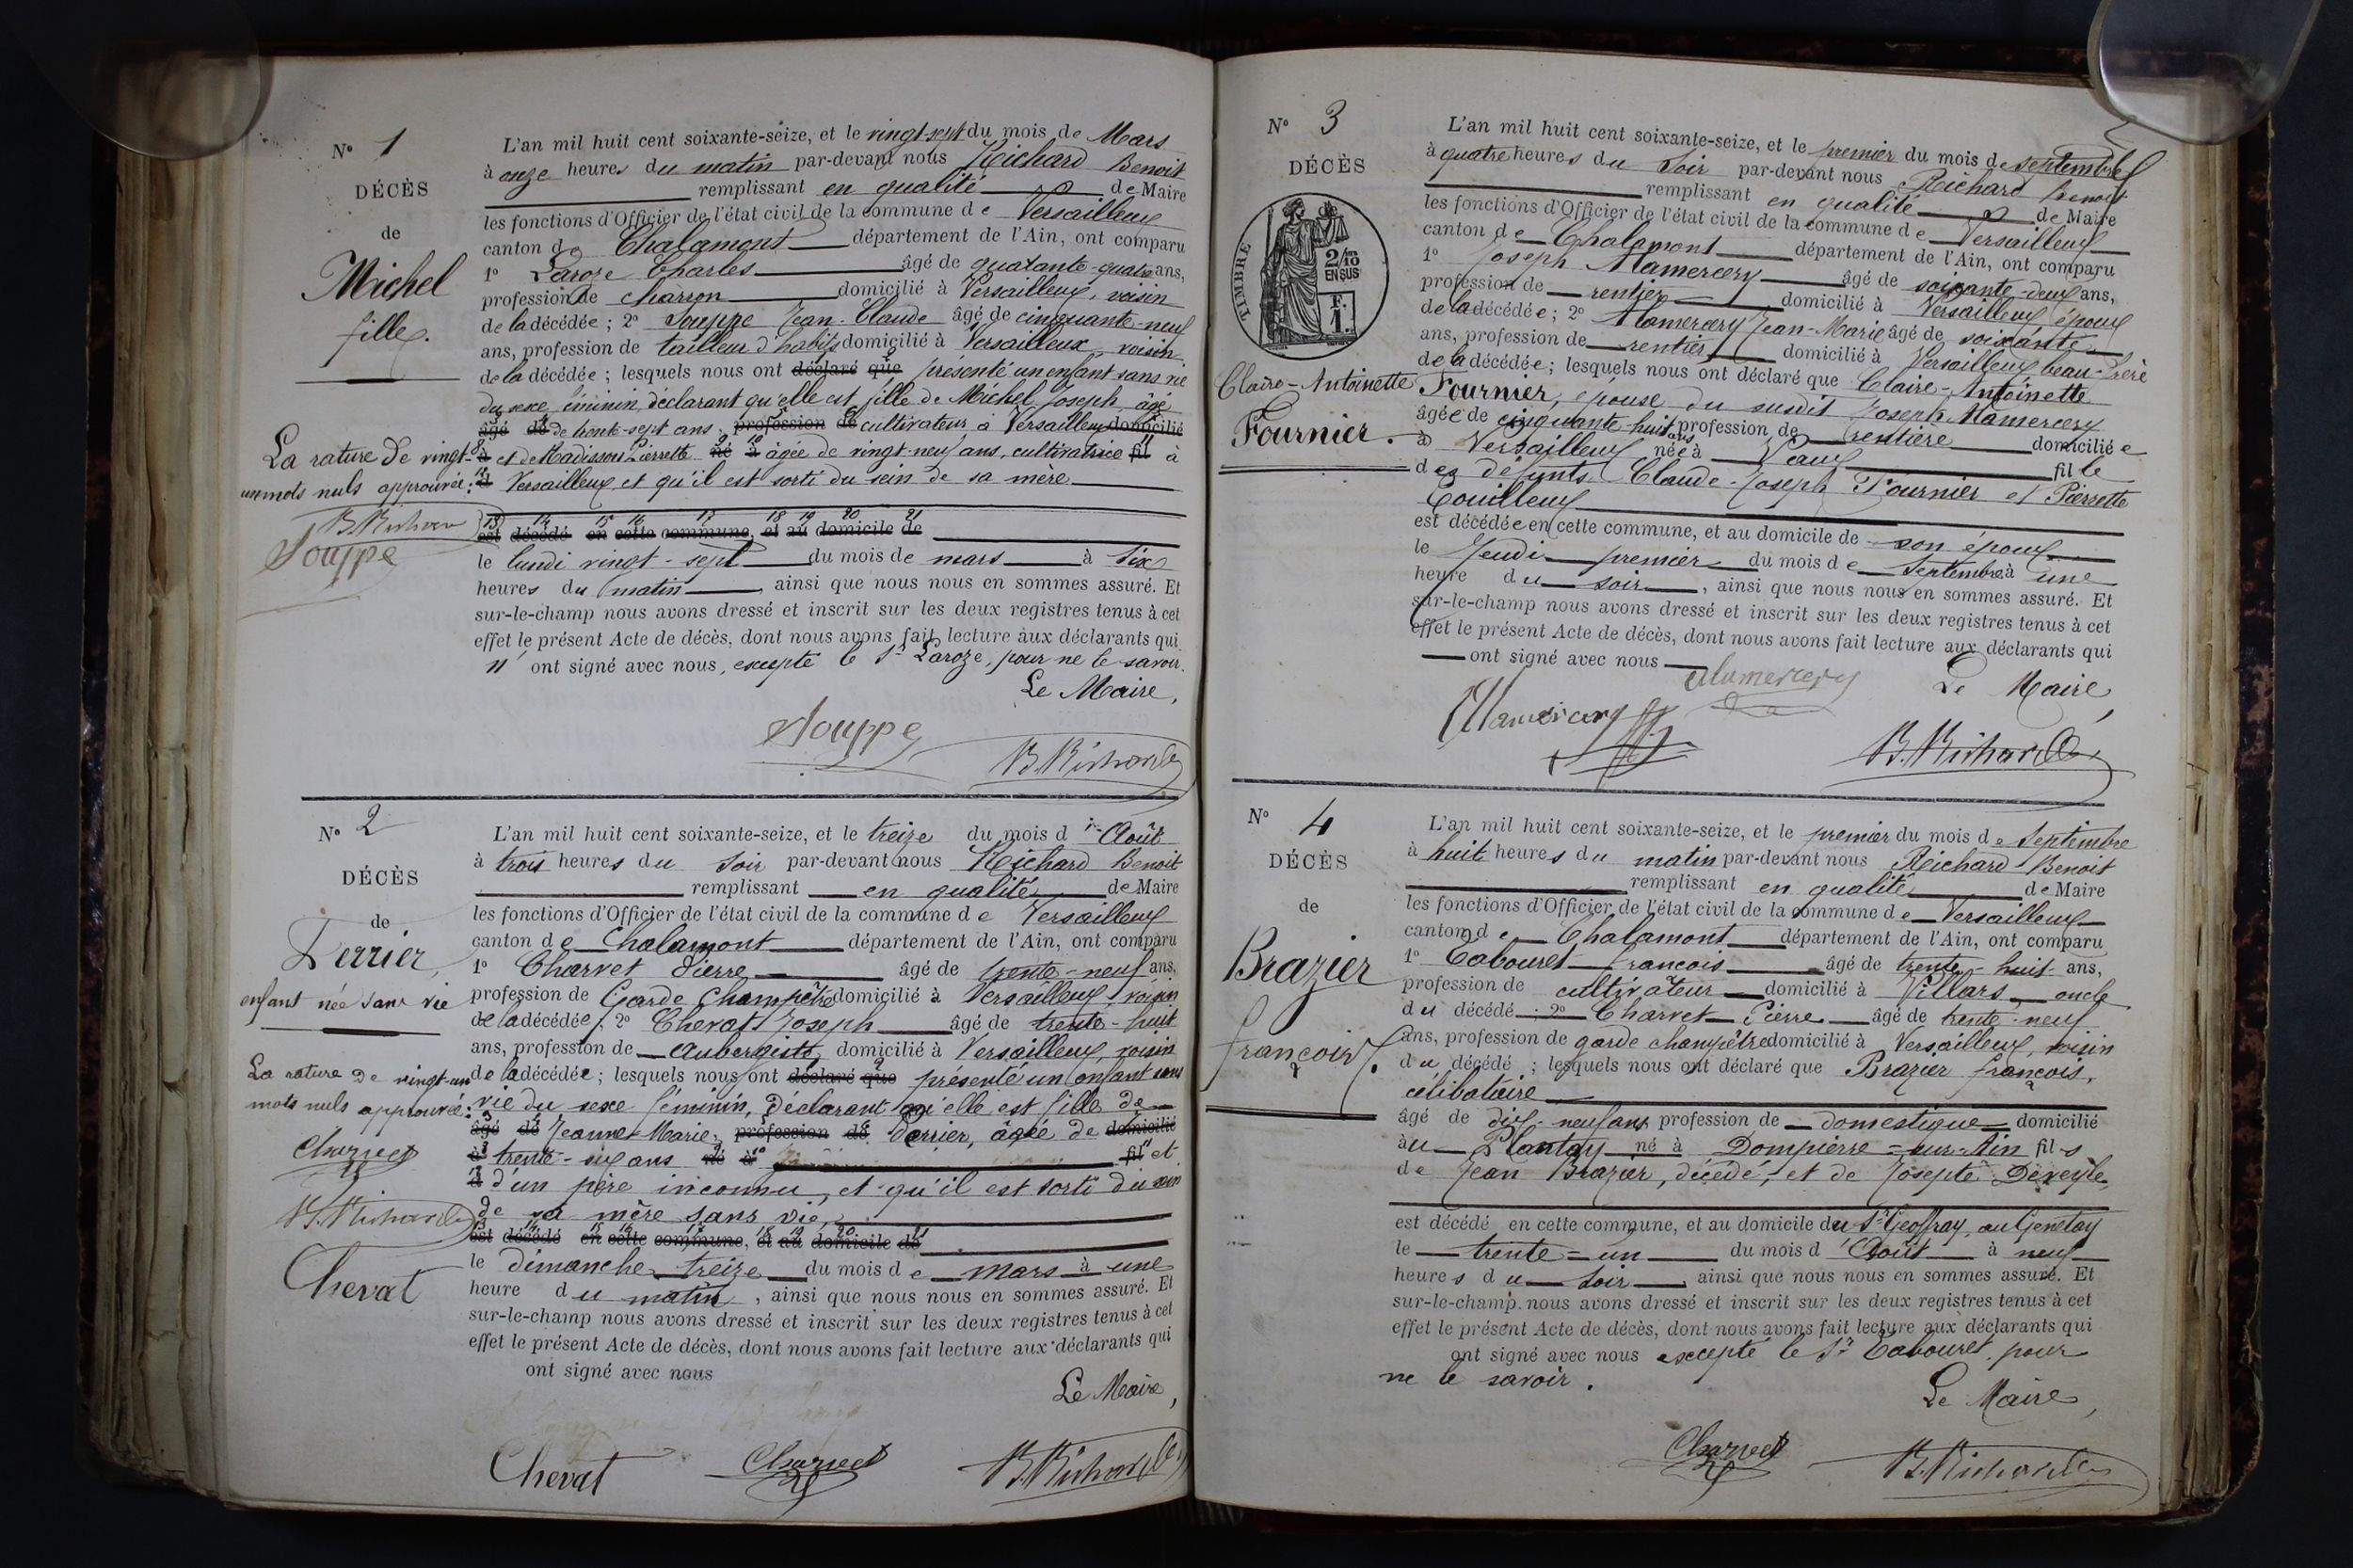 N° 1
DÉCÈS
de
Michel
fille.
La rature de vingt-
un mots nuls approuvée:
B. Richard
Souppe
L'an mil huit cent soixante-seize, et le vingt-sept du mois de Mars
à onze heures du matin par-devant nous Richard Benoit
remplissant en qualité de Maire
les fonctions d'Officier de l'état civil de la commune de Versailleux
canton de Chalamont département de l'Ain, ont comparu
1° Laroze Charles âgé de quarante-quatre ans,
profession de charron domicilié à Versailleux, voisin
de la décédée; 2° Souppe Jean-Claude âgé de cinquante-neuf
ans, profession de tailleur d'habits domicilié à Versailleux, voisin
de la décédée; lesquels nous ont déclaré que présenté un enfant sans vie
du sexe féminin, déclarant qu'elle est fille de Michel Joseph, âgé
âgé de de trente-sept ans, profession de cultivateur à Versailleux domicilié
à et de Madisson Pierrette né à âgée de vingt-neuf ans, cultivatrice fil à
d Versailleux, et qu'il est sorti du sein de sa mère
13 14 15 16 17 18 19 20 21
est décédé en cette commune, et au domicile de
le lundi vingt-sept du mois de mars à six
heures du matin, ainsi que nous nous en sommes assuré. Et
sur-le-champ nous avons dressé et inscrit sur les deux registres tenus à cet
effet le présent Acte de décès, dont nous avons fait lecture aux déclarants qui
ont signé avec nous, excepté le Sr Laroze, pour ne le savoir.
Le Maire,
Souppe
B. Richard
N° 2
DÉCÈS
de
Perrier,
enfant née sans vie
La rature de vingt-un
mots nuls approuvée:
Charvet
B. Richard
Chevat
L'an mil huit cent soixante-seize, et le treize du mois d'Août
à trois heures du soir par-devant nous Richard Benoit
remplissant en qualité de Maire
les fonctions d'Officier de l'état civil de la commune de Versailleux
canton de Chalamont département de l'Ain, ont comparu
1° Charvet Pierre âgé de trente-neuf ans,
profession de Garde Champêtre domicilié à Versailleux, voisin
de la décédée; 2° Chevat Joseph âgé de trente-huit
ans, profession de Aubergiste, domicilié à Versailleux, voisin
de la décédée; lesquels nous ont déclaré que présenté un enfant sans
vie du sexe féminin, déclarant qu'elle est fille de
âgé de Jeanne-Marie, profession de Perrier, âgée de domicilié
à trente-six ans né à fil et
d d'un père inconnu, et qu'il est sorti du sein
de sa mère sans vie,
13 14 15 16 17 18 19 20 21
est décédé en cette commune, et au domicile de
le dimanche treize du mois de mars à une
heure du matin, ainsi que nous nous en sommes assuré. Et
sur-le-champ nous avons dressé et inscrit sur les deux registres tenus à cet
effet le présent Acte de décès, dont nous avons fait lecture aux déclarants qui
ont signé avec nous
Le Maire,
Chevat
Charvet
B. Richard
N° 3
DÉCÈS
TIMBRE
2/10
EN SUS
F.
1.
Claire-Antoinette
Fournier.
L'an mil huit cent soixante-seize, et le premier du mois de septembre
à quatre heures du soir par-devant nous Richard Benoit
remplissant en qualité de Maire
les fonctions d'Officier de l'état civil de la commune de Versailleux
canton de Chalamont département de l'Ain, ont comparu
1° Joseph Mamercery âgé de soixante-deux ans,
profession de rentier domicilié à Versailleux époux
de la décédée; 2° Mamercery Jean-Marie âgé de soixante
ans, profession de rentier domicilié à Versailleux beau-frère
de la décédée; lesquels nous ont déclaré que Claire-Antoinette
Fournier, épouse du susdit Joseph Mamercery
âgée de cinquante-huit ans profession de rentière domiciliée
à Versailleux née à Vaux fille
des défunts Claude-Joseph Fournier et Pierrette
Couilleux
est décédée en cette commune, et au domicile de son époux
le Jeudi premier du mois de Septembre à une
heure du soir, ainsi que nous nous en sommes assuré. Et
sur-le-champ nous avons dressé et inscrit sur les deux registres tenus à cet
effet le présent Acte de décès, dont nous avons fait lecture aux déclarants qui
ont signé avec nous
Mamercery
Le Maire,
Mamercery
B. Richard
N° 4
DÉCÈS
de
Brazier
françois.
L'an mil huit cent soixante-seize, et le premier du mois de Septembre
à huit heures du matin par-devant nous Richard Benoit
remplissant en qualité de Maire
les fonctions d'Officier de l'état civil de la commune de Versailleux
canton de Chalamont département de l'Ain, ont comparu
1° Tabouret françois âgé de trente-huit ans,
profession de cultivateur domicilié à Villars, oncle
du décédé; 2° Charvet Pierre âgé de trente-neuf
ans, profession de garde champêtre domicilié à Versailleux, voisin
du décédé; lesquels nous ont déclaré que Brazier françois,
célibataire
âgé de dix-neuf ans profession de domestique domicilié
au Plantay né à Dompierre-sur-Ain fils
de Jean Brazier, décédé, et de Josepte Deveyle
est décédé en cette commune, et au domicile du Sr Geoffray, au Genetay
le trente-un du mois d'Août à neuf
heures du soir, ainsi que nous nous en sommes assuré. Et
sur-le-champ nous avons dressé et inscrit sur les deux registres tenus à cet
effet le présent Acte de décès, dont nous avons fait lecture aux déclarants qui
ont signé avec nous excepté le Sr Tabouret, pour
ne le savoir.
Le Maire,
Charvet
B. Richard